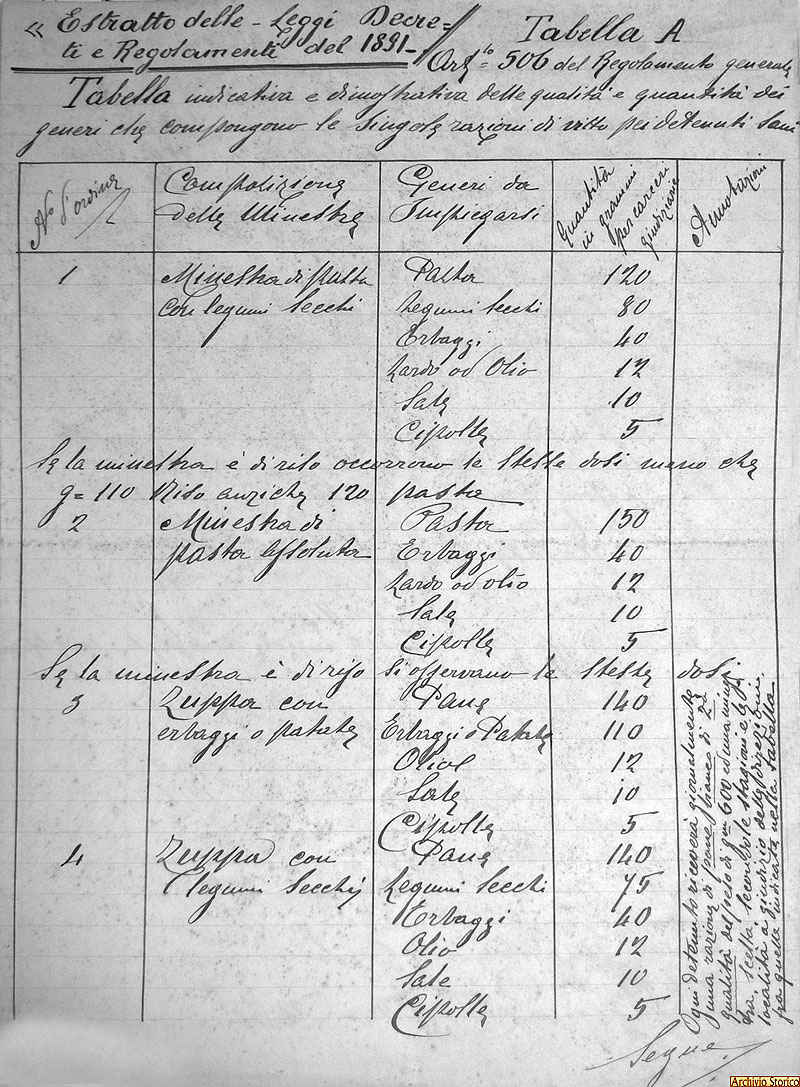 « Estratto delle Leggi Decre=
ti e Regolamenti del 1891 –
Tabella A
Art.º 506 del Regolamento generale
Tabella indicativa e dimostrativa delle qualità e quantità dei
generi che compongono le singole razioni di vitto pei detenuti sani
Nº d'ordine
Composizione
della Minestra
Generi da
Impiegarsi
Quantità
in grammi
per carceri
giudiziarie
Annotazioni
1 Minestra di pasta Pasta 120
con legumi secchi Legumi secchi 80
Erbaggi 40
Lardo od Olio 12
Sale 10
Cipolle 5
Se la minestra è di riso occorrono le stesse dosi meno che
g= 110 Riso anziche 120 pasta
2 Minestra di Pasta 150
pasta assoluta Erbaggi 40
Lardo od olio 12
Sale 10
Cipolle 5
Se la minestra è di riso si osservano le stesse dosi
3 Zuppa con Pane 140
erbaggi o patate Erbaggi o Patate 110
Olio 12
Sale 10
Cipolle 5
4 Zuppa con Pane 140
legumi secchi Legumi secchi 75
Erbaggi 40
Olio 12
Sale 10
Cipolle 5
Ogni detenuto riceverà giornalmente
una razione di pane bianco di 2ª
qualità del peso di gm 600 ed una mines
tra, scelta secondo le stagioni e le
località a giudizio delle direzioni
fra quelle indicate nella tabella
Segue
Archivio Storico